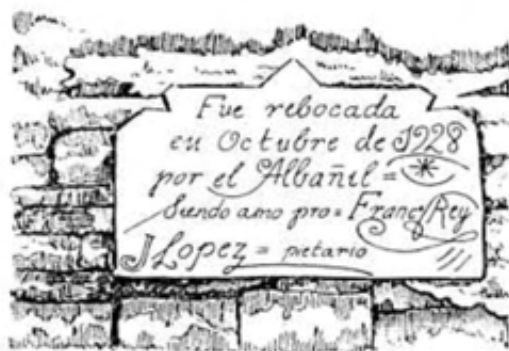 Fue rebocada
en Octubre de 1928
por el Albañil =
Siendo amo pro = Francº Rey
J Lopez = pietario